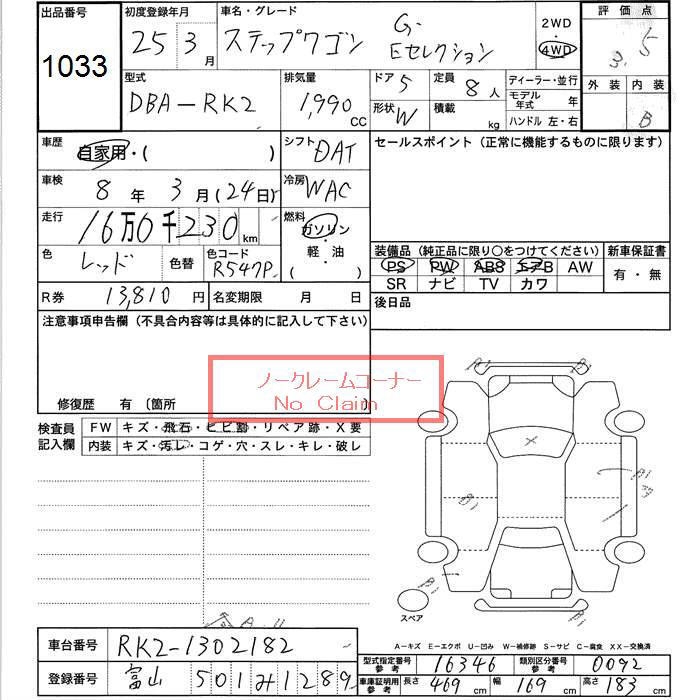 出品番号 初度登録年月 車名・グレード 評価点
1033 25 3月 ステップワゴン G・Eセレクション 2WD 4WD 3.5
型式 排気量 ドア 5 定員 8人 ディーラー・並行 外装 内装
DBA-RK2 1,990 CC 形状 W 積載 kg モデル年式 年 ハンドル 左・右 B
車歴 自家用・( ) シフト DAT セールスポイント (正常に機能するものに限ります)
車検 8年 3月 (24日) 冷房 WAC
走行 16万0千230km 燃料 ガソリン・軽油 ( )
色 レッド 色替 色コード R547P 装備品 (純正品に限り○をつけてください) 新車保証書
PS PW ABS エアB AW 有・無
SR ナビ TV カワ
R券 13,810円 名変期限 月 日 後日品
注意事項申告欄 (不具合内容等は具体的に記入して下さい)
ノークレームコーナー
No Claim
修復歴 有 〔箇所
検査員記入欄 FW キズ・飛石・ヒビ割・リペア跡・X要
内装 キズ・汚レ・コゲ・穴・スレ・キレ・破レ
スペア
A-キズ E-エクボ U-凹み W-補修跡 S-サビ C-腐食 XX-交換済
車台番号 RK2-1302182 型式指定番号参考 16346 類別区分番号参考 0092
登録番号 富山 501 み 1289 車庫証明用参考 長さ 469cm 幅 169cm 高さ 183cm